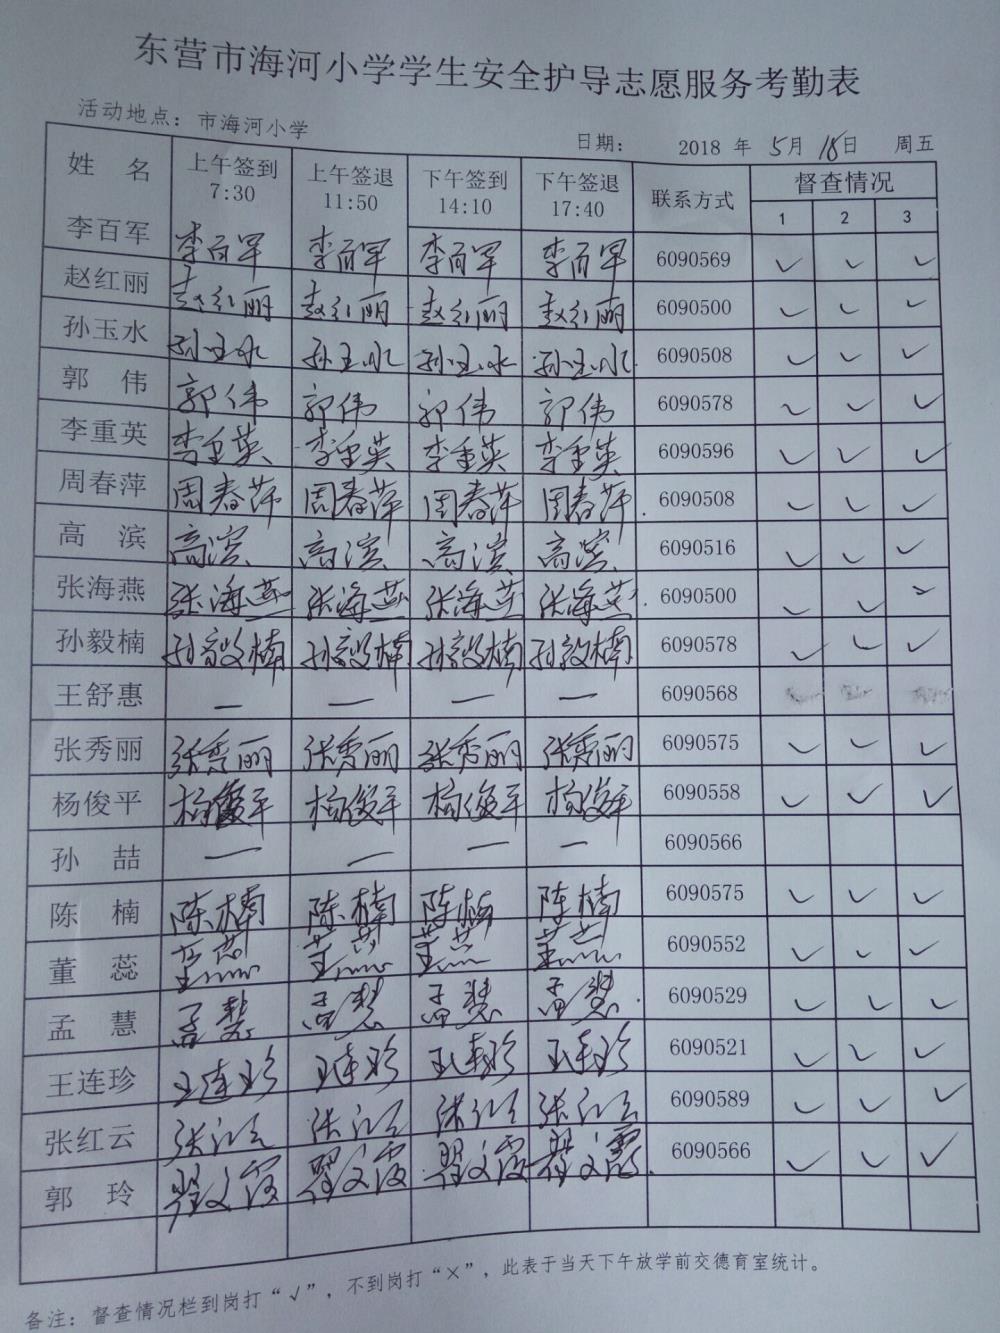 东营市海河小学学生安全护导志愿服务考勤表
活动地点：市海河小学 日期： 2018 年 5月 18日 周五
姓 名 上午签到 7:30 上午签退 11:50 下午签到 14:10 下午签退 17:40 联系方式 督查情况 1 2 3
李百军 李百军 李百军 李百军 李百军 6090569 ✓ ✓ ✓
赵红丽 赵红丽 赵红丽 赵红丽 赵红丽 6090500 ✓ ✓ ✓
孙玉水 孙玉水 孙玉水 孙玉水 孙玉水 6090508 ✓ ✓ ✓
郭 伟 郭伟 郭伟 郭伟 郭伟 6090578 ✓ ✓ ✓
李重英 李重英 李重英 李重英 李重英 6090596 ✓ ✓ ✓
周春萍 周春萍 周春萍 周春萍 周春萍 6090508 ✓ ✓ ✓
高 滨 高滨 高滨 高滨 高滨 6090516 ✓ ✓ ✓
张海燕 张海燕 张海燕 张海燕 张海燕 6090500 ✓ ✓ ✓
孙毅楠 孙毅楠 孙毅楠 孙毅楠 孙毅楠 6090578 ✓ ✓ ✓
王舒惠 — — — — 6090568
张秀丽 张秀丽 张秀丽 张秀丽 张秀丽 6090575 ✓ ✓ ✓
杨俊平 杨俊平 杨俊平 杨俊平 杨俊平 6090558 ✓ ✓ ✓
孙 喆 — — — — 6090566
陈 楠 陈楠 陈楠 陈楠 陈楠 6090575 ✓ ✓ ✓
董 蕊 董蕊 董蕊 董蕊 董蕊 6090552 ✓ ✓ ✓
孟 慧 孟慧 孟慧 孟慧 孟慧 6090529 ✓ ✓ ✓
王连珍 王连珍 王连珍 王连珍 王连珍 6090521 ✓ ✓ ✓
张红云 张红云 张红云 张红云 张红云 6090589 ✓ ✓ ✓
郭 玲 翟文霞 翟文霞 翟文霞 翟文霞 6090566 ✓ ✓ ✓
备注：督查情况栏到岗打“√”，不到岗打“×”，此表于当天下午放学前交德育室统计。